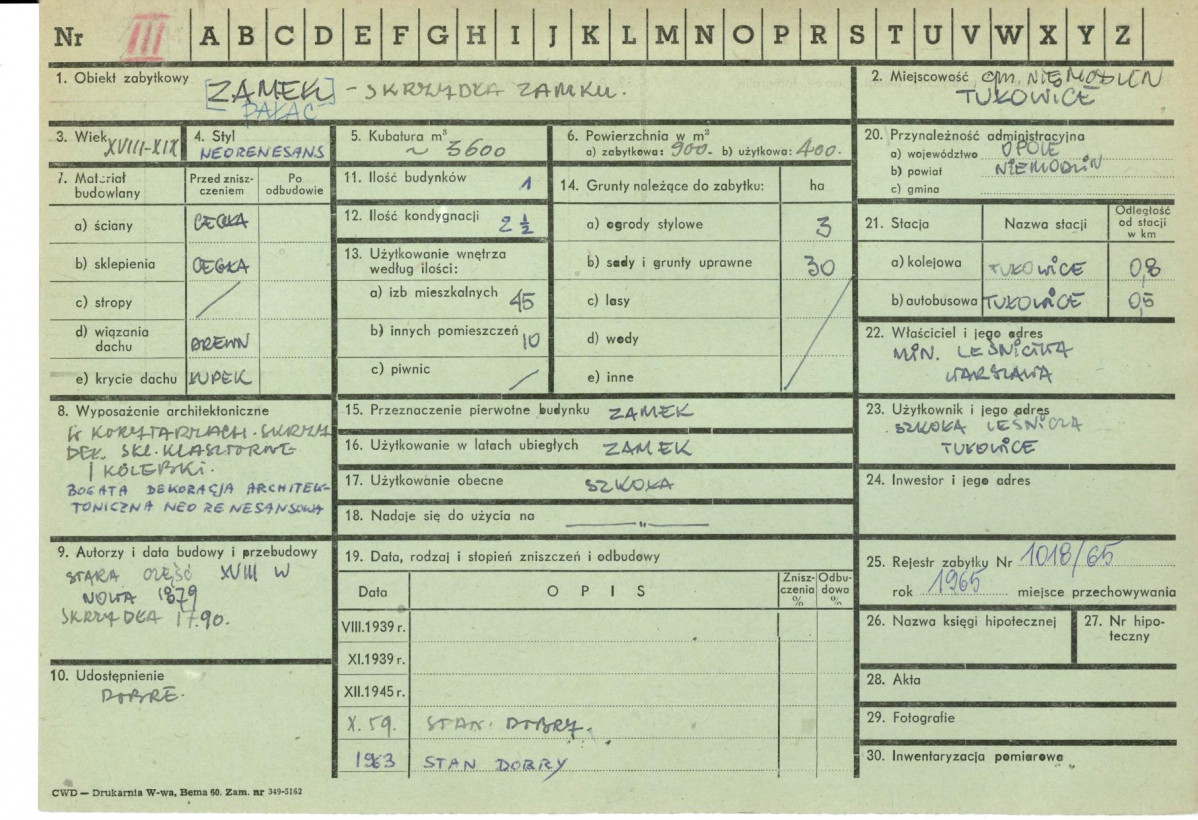 Nr III A B C D E F G H I J K L M N O P R S T U V W X Y Z
1. Obiekt zabytkowy [ZAMEK] – SKRZYDŁA ZAMKU.
PAŁAC
2. Miejscowość gm. NIEMODLIN
TUŁOWICE
3. Wiek XVIII-XIX
4. Styl
NEORENESANS
5. Kubatura m³
~ 3600
6. Powierzchnia w m²
a) zabytkowa: 900.- b) użytkowa: 400.-
20. Przynależność administracyjna
a) województwo OPOLE
b) powiat NIEMODLIN
c) gmina
7. Materiał budowlany
Przed zniszczeniem
Po odbudowie
a) ściany CEGŁA
b) sklepienia CEGŁA
c) stropy /
d) wiązania dachu DREWN
e) krycie dachu ŁUPEK
11. Ilość budynków 1
12. Ilość kondygnacji 2 ½
13. Użytkowanie wnętrza
według ilości:
a) izb mieszkalnych 45
b) innych pomieszczeń 10
c) piwnic /
14. Grunty należące do zabytku: ha
a) ogrody stylowe 3
b) sady i grunty uprawne 30
c) lasy
d) wody
e) inne
21. Stacja Nazwa stacji Odległość od stacji w km
a) kolejowa TUŁOWICE 0,8
b) autobusowa TUŁOWICE 0,5
22. Właściciel i jego adres
MIN. LEŚNICTWA
WARSZAWA
8. Wyposażenie architektoniczne
W KORYTARZACH. SKRZY
DEŁ. SKL. KLASZTORNE
I KOLEBKI.
BOGATA DEKORACJA ARCHITEK-
TONICZNA NEORENESANSOWA
15. Przeznaczenie pierwotne budynku ZAMEK
16. Użytkowanie w latach ubiegłych ZAMEK
17. Użytkowanie obecne SZKOŁA
18. Nadaje się do użycia na —„—
23. Użytkownik i jego adres
SZKOŁA LEŚNICZA
TUŁOWICE
24. Inwestor i jego adres
9. Autorzy i data budowy i przebudowy
STARA CZĘŚĆ XVIII W
NOWA 1879
SKRZYDŁA 1790.
10. Udostępnienie
DOBRE.
19. Data, rodzaj i stopień zniszczeń i odbudowy
Data OPIS Zniszczenia % Odbudowa %
VIII.1939 r.
XI.1939 r.
XII.1945 r.
X. 59. STAN. DOBRY.
1963 STAN DOBRY
25. Rejestr zabytku Nr 1018/65
rok 1965 miejsce przechowywania
26. Nazwa księgi hipotecznej
27. Nr hipoteczny
28. Akta
29. Fotografie
30. Inwentaryzacja pomiarowa
CWD — Drukarnia W-wa, Bema 60. Zam. nr 349-5162